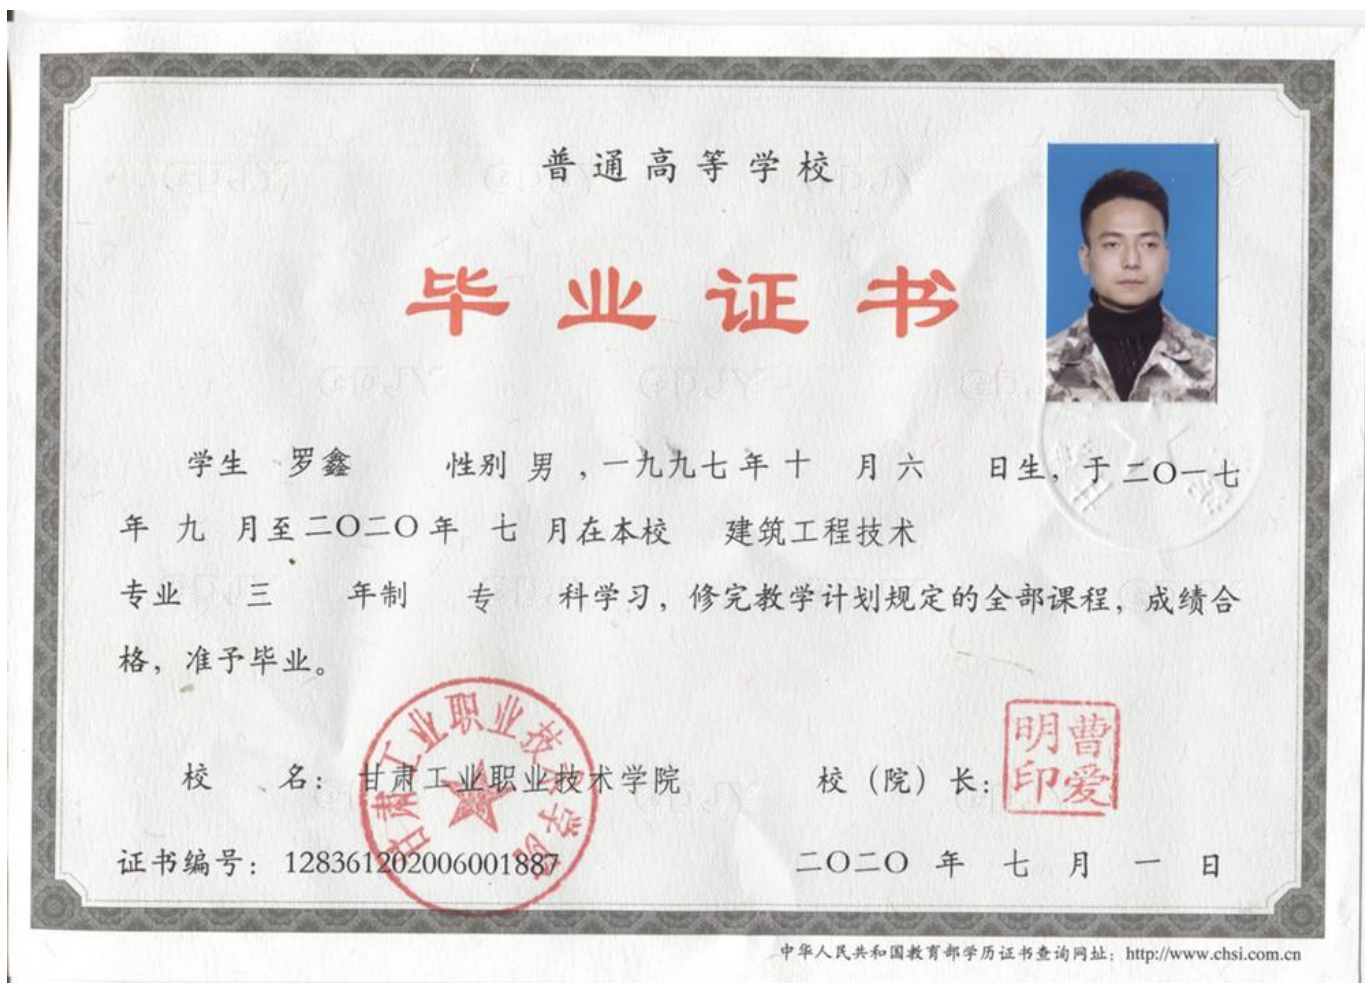 普通高等学校
毕业证书
学生 罗鑫 性别 男 ，一九九七年十 月六 日生，于二〇一七
年 九 月至二〇二〇年 七 月在本校 建筑工程技术
专业 三 年制 专 科学习，修完教学计划规定的全部课程，成绩合
格，准予毕业。
甘肃工业职业技术学院
校 名：甘肃工业职业技术学院 校（院）长：
曹爱
明印
证书编号：128361202006001887 二〇二〇 年 七 月 一 日
中华人民共和国教育部学历证书查询网址：http://www.chsi.com.cn